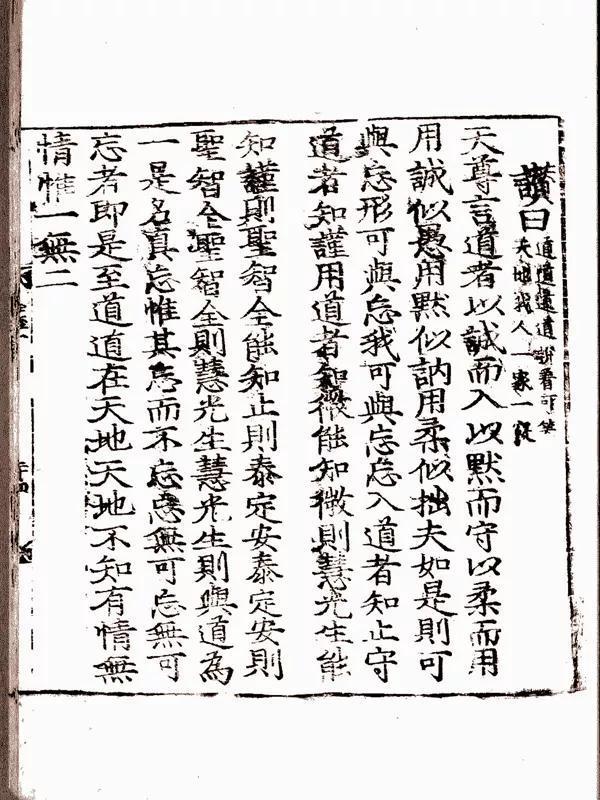 讃曰
地我人一家一
天尊言道者以誠而入以默而守以柔而用
用誠似愚用默似訥用柔似拙夫如是則可
與忘形可與忘我可與忘忘入道者知止守
道者知謹用道者知微能知微則慧光生能
知謹則聖智全能知止則泰定安泰定安則
聖智全聖智全則慧光生慧光生則與道為
一是名真忘惟其忘而不忘忘無可忘無可
忘者即是至道道在天地天地不知有情無
情惟一無二